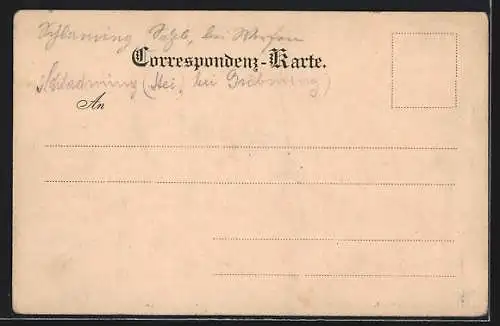 Schlaming Salzb. bei Werfen
Correspondenz-Karte.
Schladming (Stei.) bei Gröbming)
An